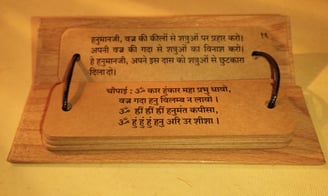 हनुमानजी, वज्र की कीलों से शत्रुओं पर प्रहार करो।
११
अपनी वज्र की गदा से शत्रुओं का विनाश करो।
हे हनुमानजी, अपने इस दास को शत्रुओं से छुटकारा
दिला दो।
चौपाई : ॐ कार हुंकार महा प्रभु धावो,
वज्र गदा हनु विलम्ब न लावो।
ॐ ह्रीं ह्रीं ह्रीं हनुमंत कपीसा,
ॐ हुं हुं हुं हनु अरि उर शीशा।